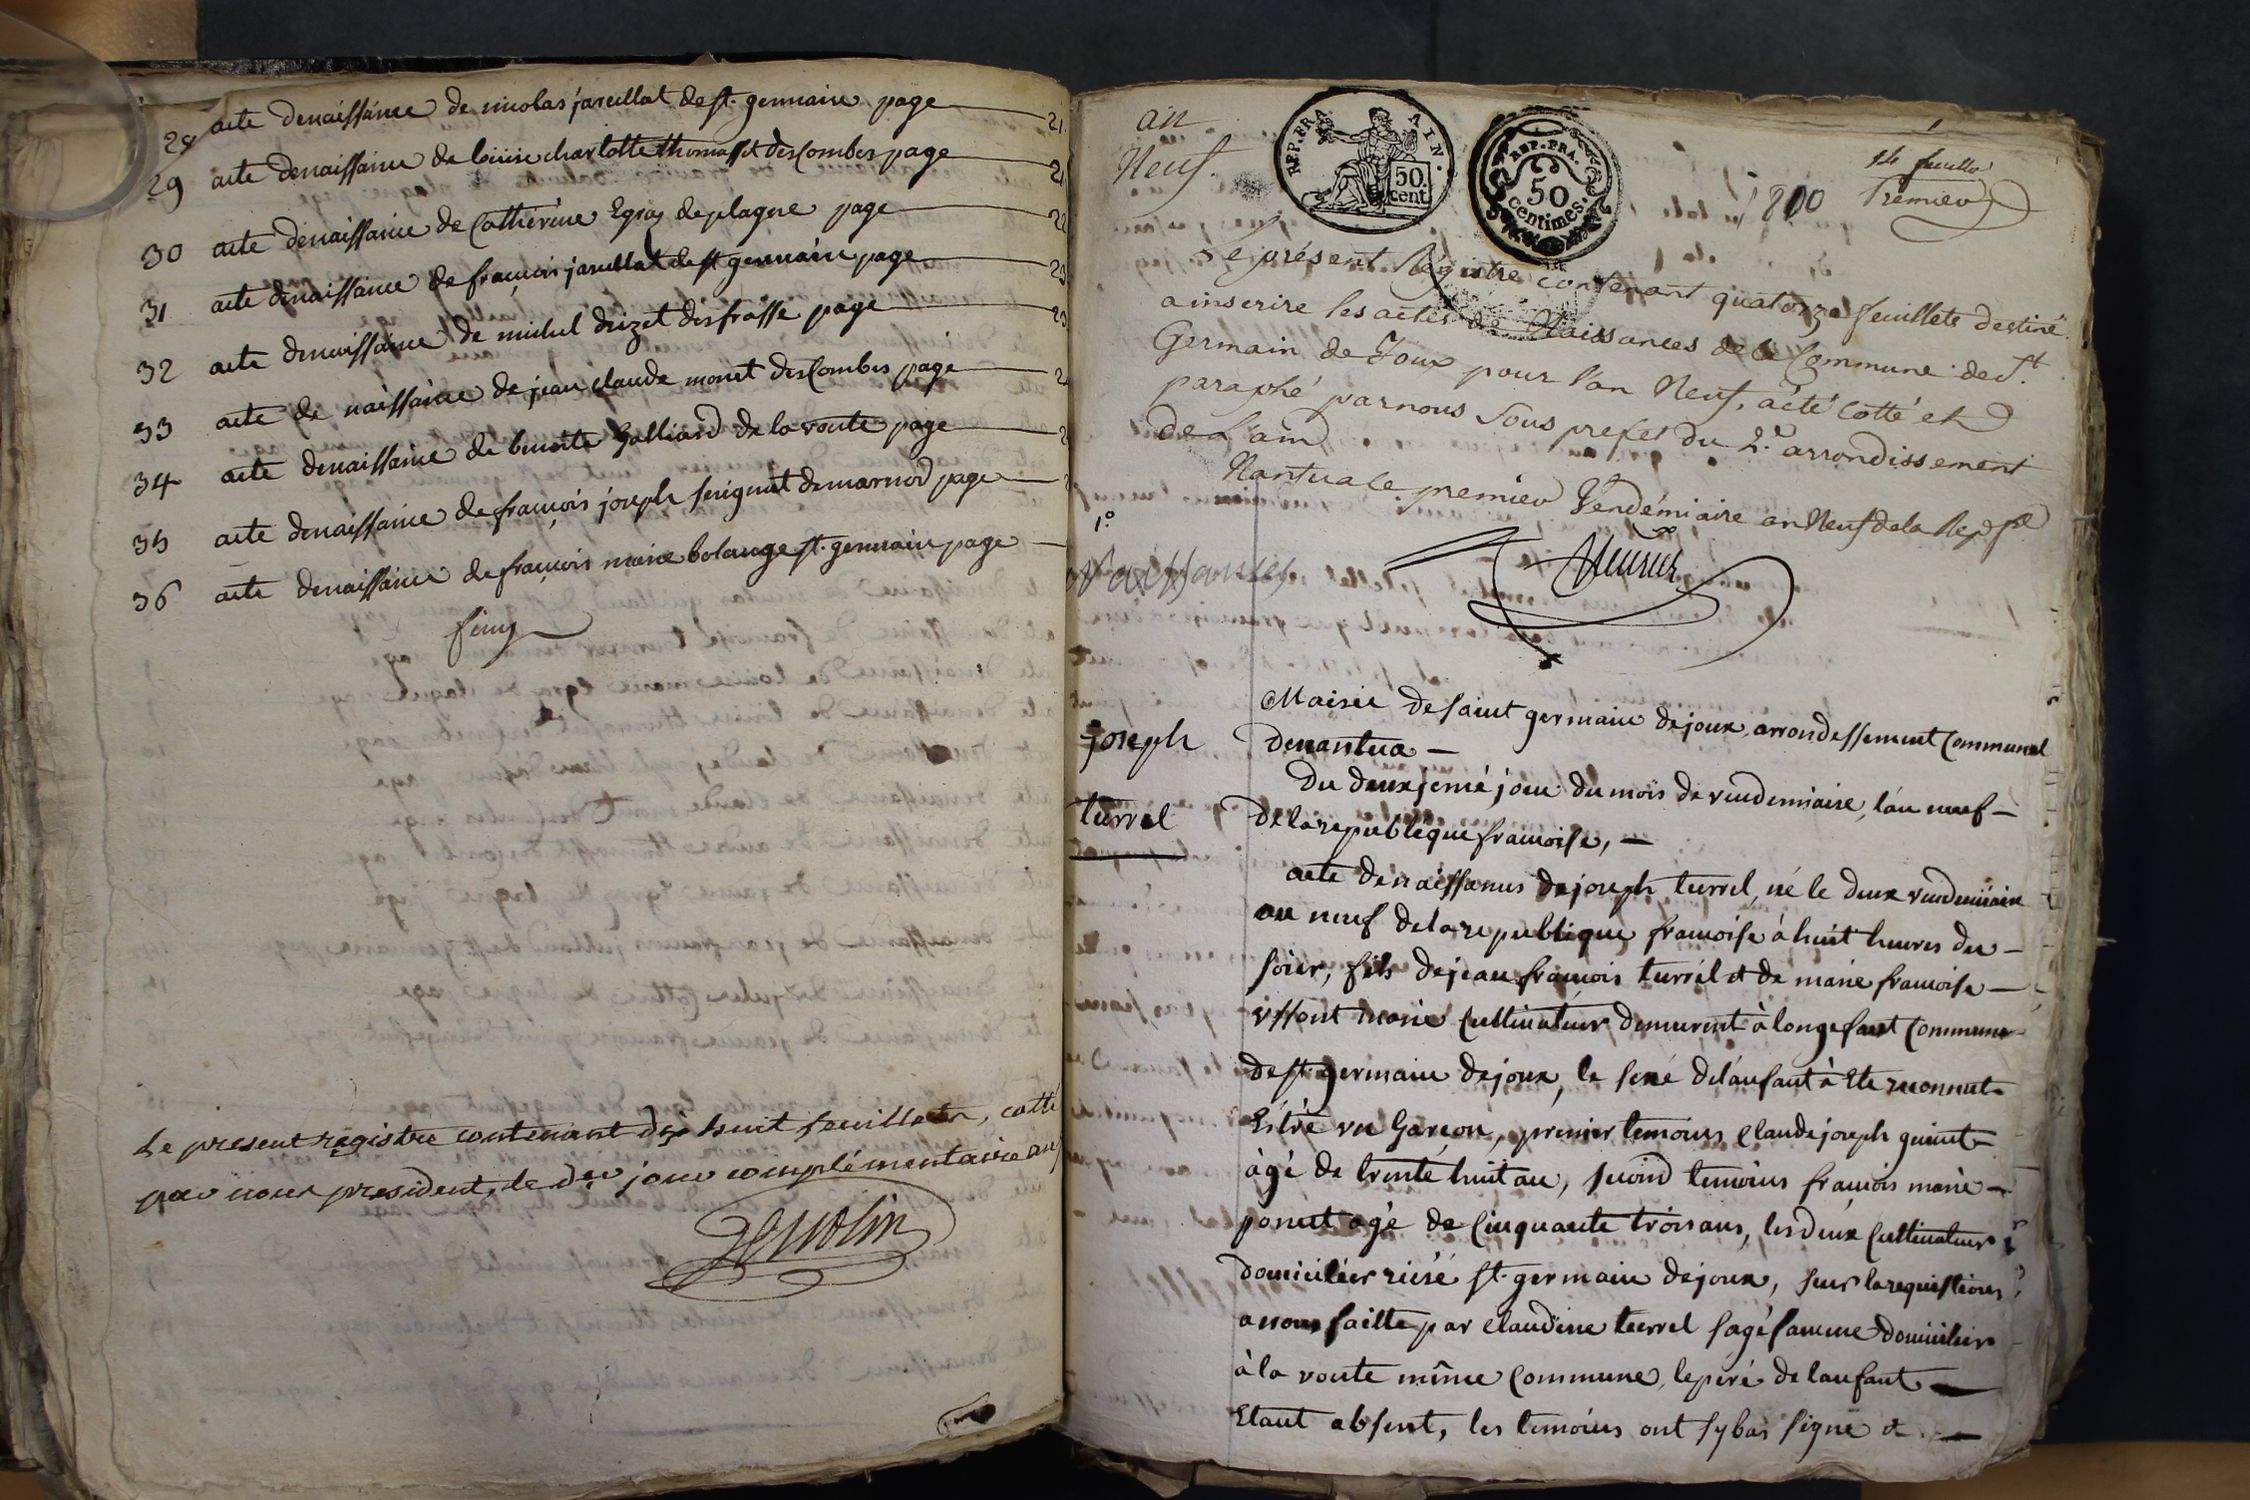 28 acte denaissance de nicolas jareillat de st. germain page 21
29 acte denaissance de louise charlotte thomasset des Combes page 21
30 acte denaissance de Catherine Egraz deplagne page 22
31 acte denaissance de françois jareillat de st germain page 23
32 acte denaissance de michel drizet desfrasse page 23
33 acte de naissance de jean claude monet des Combes page 2
34 acte denaissance de benoite Galliard de la voute page 2
35 acte denaissance de françois joseph seignat demarnod page
36 acte denaissance de françois marie bolange st. germain page
finy
Le present registre contenant dix huit feuillets, cotté
par nous president, le der jour complémentaire an
an
Neuf.
REP. FRA. AIN.
50 cent.
REP. FRA.
50
centimes.
1800
14 feuillet
Premier
Le présent Régistre contenant quatorze feuillets destiné
a inscrire les actes de Naissances de la Commune de St.
Germain de Joux pour l'an Neuf, a été cotté et
paraphé par nous Sous prefet du 2.e arrondissement
de L'ain
Nantua le premier Vendémiaire an Neuf de la Rep. fse
1.º
Naissances
joseph
turrel
Mairie de saint germain dejoux, arrondessement Communal
denantua —
Du deuxjeme jour du mois de vendemiaire, l'an neuf —
De la republeque francoise, —
acte denaissances dejoseph turrel, né le deux vendemiaire
an neuf de la republique francoise à huit heures du —
soier, fils dejean francois turrel et de marie francoise —
yssont marie Cultivateur demurent à longefant Commune
de st. germain dejoux, le sexe delanfant à Ete reconnut
Estre un Garcon, premier temoins claude joseph guint
àgé de trente huit an, second temoins francois marie —
ponut agé de Cinquante trois ans, les deux Cultivateurs
domicilier riere st. germain dejoux, sur larequisitions
a nous faitte par claudine turrel sagefamme domicilier
à la voute même Commune, le peré de lanfant —
Etant absent, les temoins ont sybas signe et —